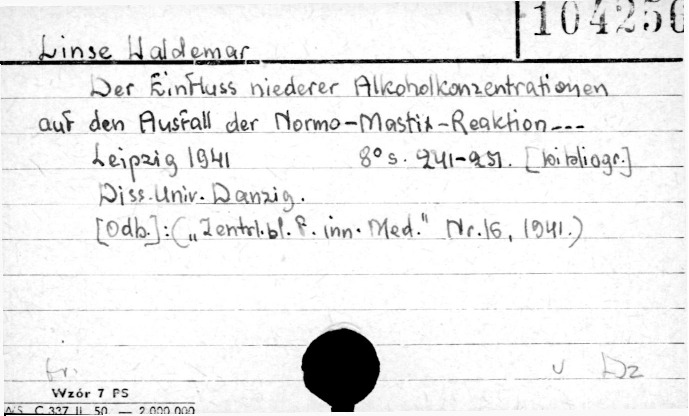 104250
Linse Waldemar
Der Einfluss niederer Alkoholkonzentrationen
auf den Ausfall der Normo-Mastix-Reaktion---
Leipzig 1941 8° s. 241-251. [bibliogr.]
Diss. Univ. Danzig.
[Odb.]: („Zentrl.bl. f. inn. Med." Nr. 16, 1941.)
fr. v Dz
Wzór 7 PS
A/S C 337 II 50 — 2.000.000